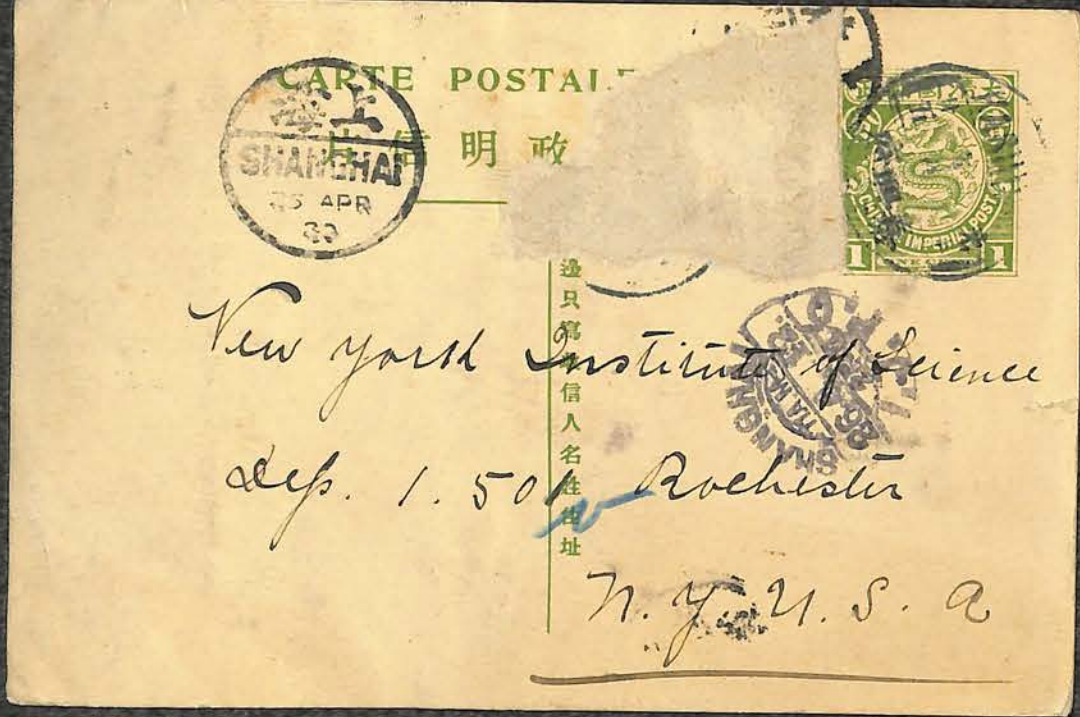 CARTE POSTAL
片信明政
上海
SHANGHAI
APR
大清國郵政
CHINESE IMPERIAL POST
1 1
邊只寫收信人名姓住址
SHANGHAI
New York Institute of Science
Dep. 1. 501 Rochester
N. Y. U. S. A